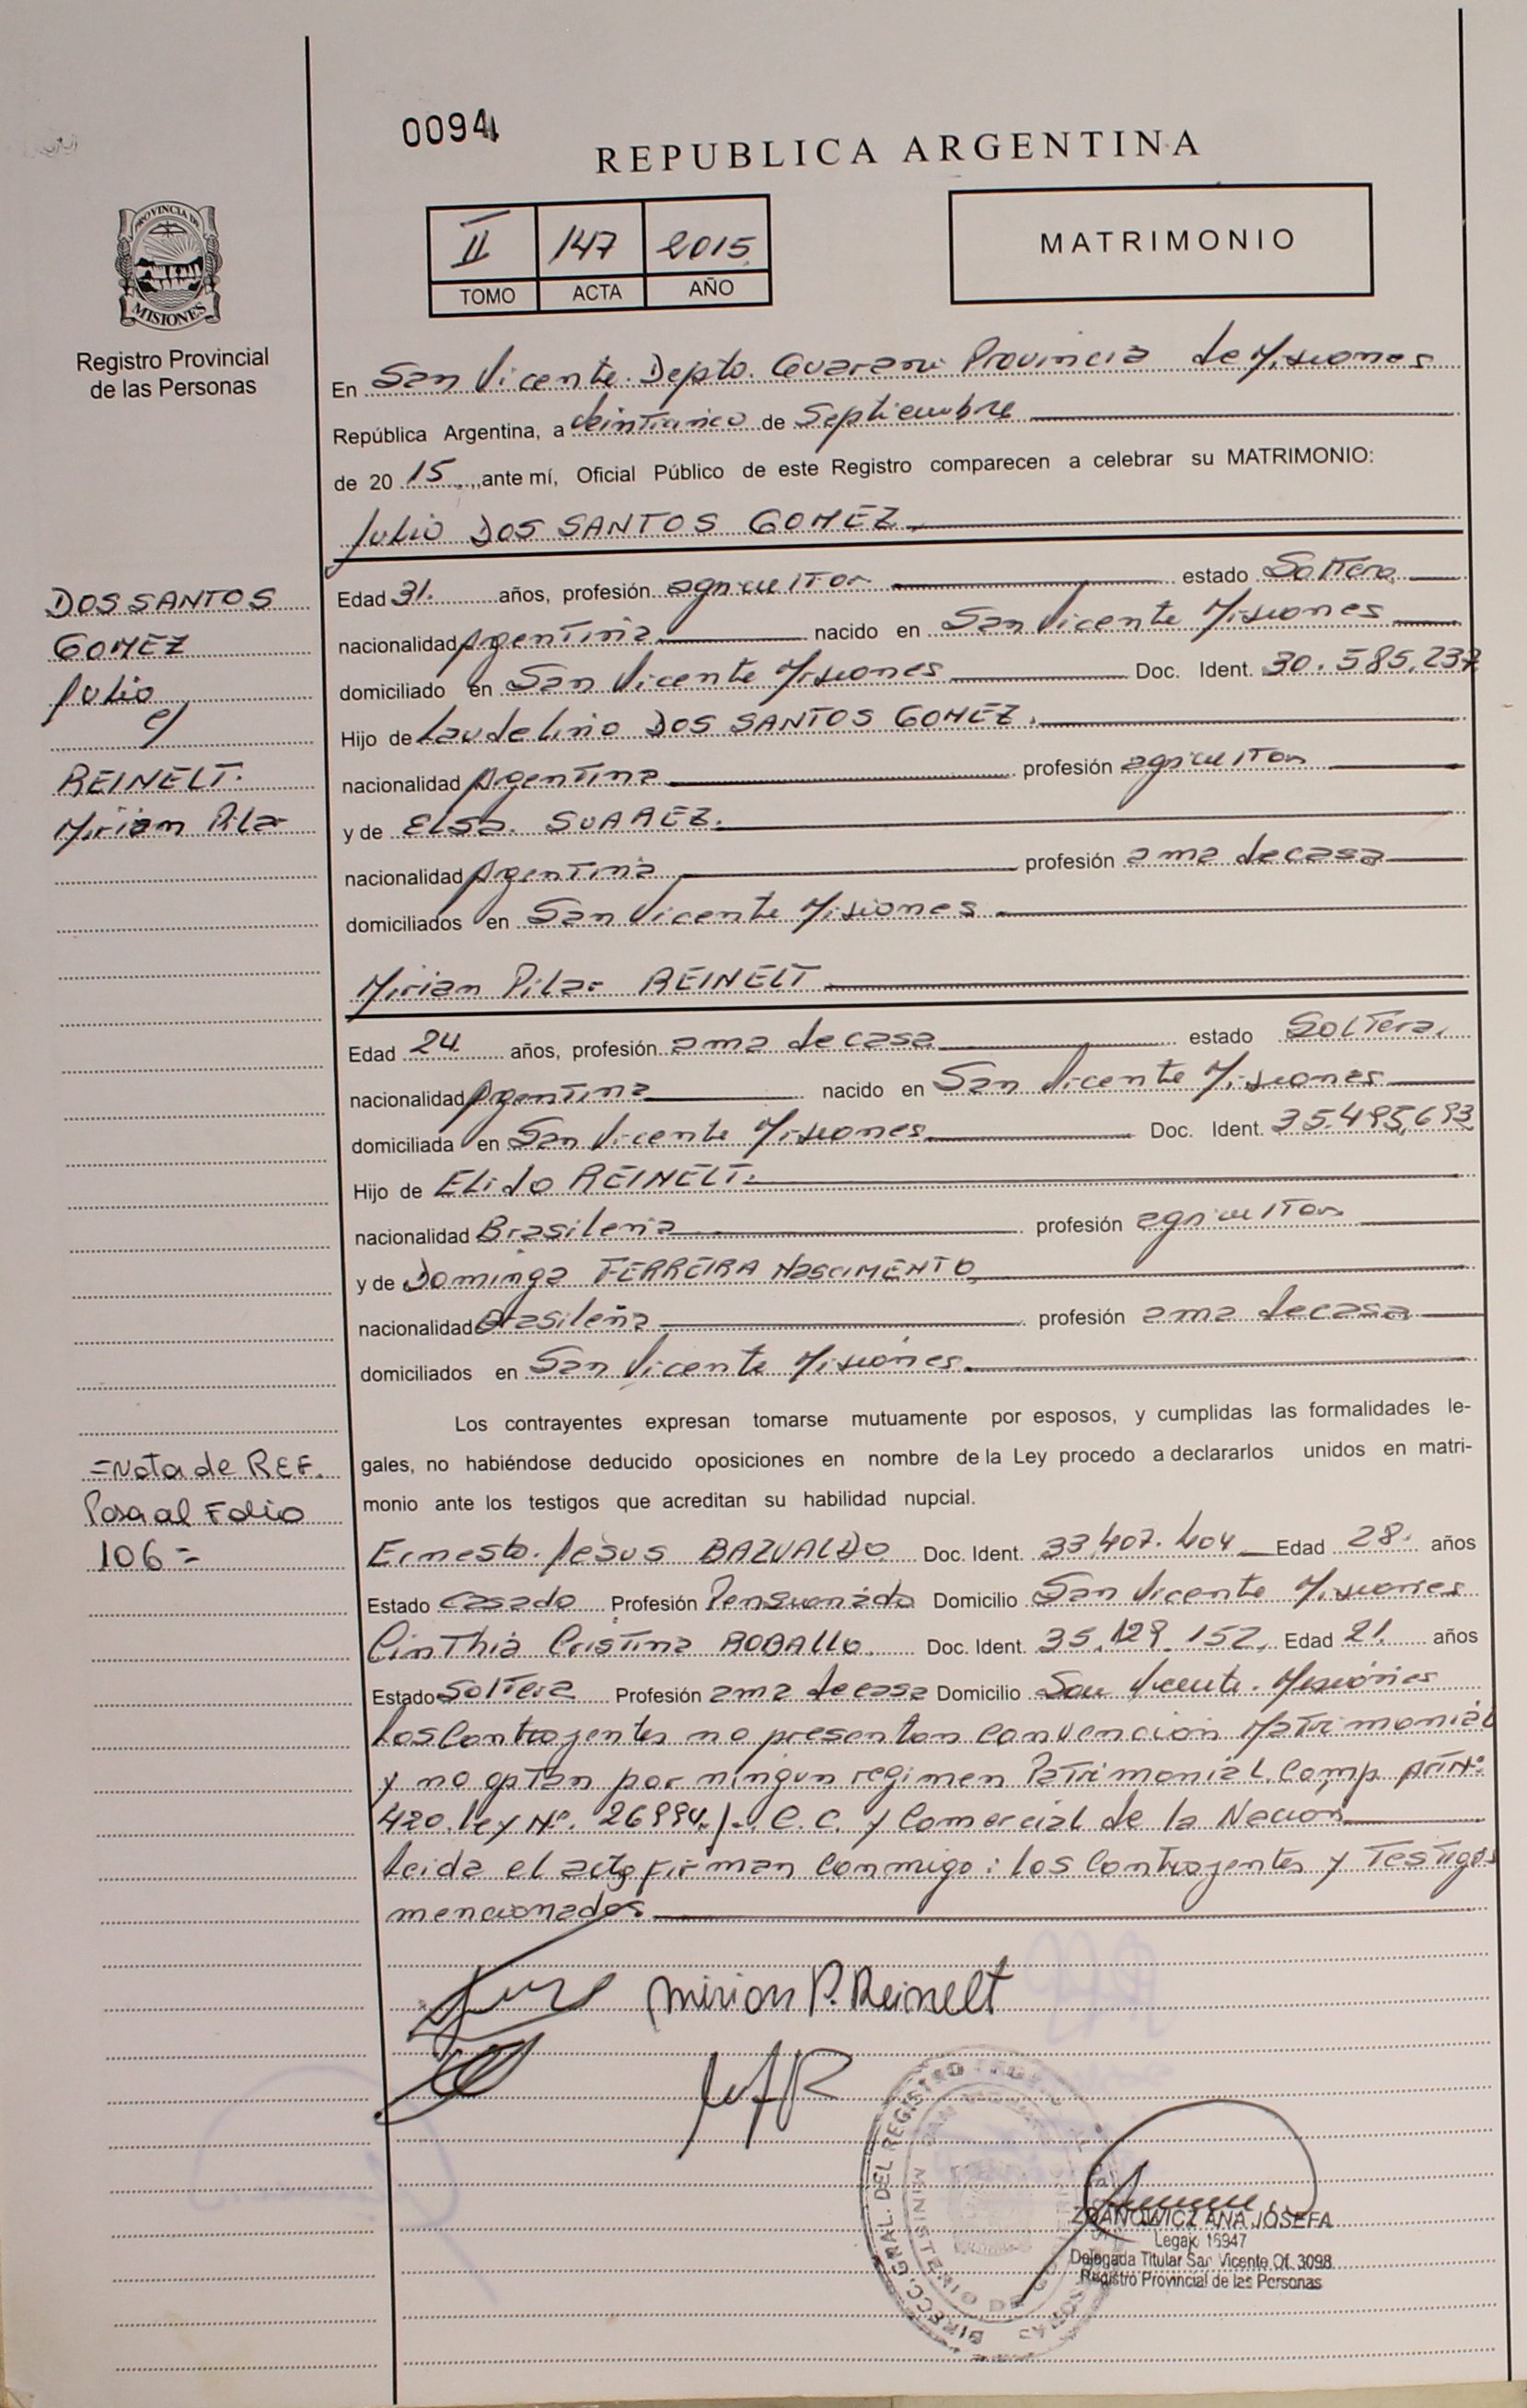 0094
REPUBLICA ARGENTINA
II 147 2015
TOMO ACTA AÑO
MATRIMONIO
PROVINCIA DE
MISIONES
Registro Provincial
de las Personas
En San Vicente. Depto. Guarani Provincia de Misiones
República Argentina, a Veinticinco de Septiembre
de 20 15 ante mí, Oficial Público de este Registro comparecen a celebrar su MATRIMONIO:
Julio DOS SANTOS GOMEZ.
DOS SANTOS
GOMEZ
Julio
c/
REINELT.
Mirian Pilar
Edad 31. años, profesión agricultor estado Soltero
nacionalidad Argentina nacido en San Vicente Misiones
domiciliado en San Vicente Misiones Doc. Ident. 30.585.237
Hijo de Laudelino DOS SANTOS GOMEZ.
nacionalidad Argentina profesión agricultor
y de Elsa. SUAREZ.
nacionalidad Argentina profesión ama de casa
domiciliados en San Vicente Misiones
Mirian Pilar REINELT
Edad 24 años, profesión ama de casa estado Soltera.
nacionalidad Argentina nacido en San Vicente Misiones
domiciliada en San Vicente Misiones Doc. Ident. 35.495.693
Hijo de Elido REINELT.
nacionalidad Brasileña profesión agricultor
y de Dominga FERREIRA NASCIMENTO
nacionalidad Brasileña profesión ama de casa
domiciliados en San Vicente Misiones.
Los contrayentes expresan tomarse mutuamente por esposos, y cumplidas las formalidades le-
gales, no habiéndose deducido oposiciones en nombre de la Ley procedo a declararlos unidos en matri-
monio ante los testigos que acreditan su habilidad nupcial.
=Nota de REF.
Pasa al Folio
106=
Ernesto. Jesus BAZUALDO Doc. Ident. 33.407.404 Edad 28. años
Estado Casado Profesión Pensionado Domicilio San Vicente Misiones
Cinthia Cristina ROBALLO. Doc. Ident. 35.129.152. Edad 21. años
Estado Soltera Profesión ama de casa Domicilio San Vicente. Misiones
Los Contrayentes no presentan Convención Matrimonial
y no optan por ningun regimen Patrimonial. Comp. ArtNº
420. Ley Nº. 26994./-. C.C. y Comercial de la Nacion
Leida el acta firman Conmigo: los Contrayentes y Testigos
mencionados
Mirian P. Reinelt
DIRECC. GRAL. DEL REGISTRO
ZDANOWICZ ANA JOSEFA
Legajo 16947
Delegada Titular San Vicente Of. 3098
Registro Provincial de las Personas